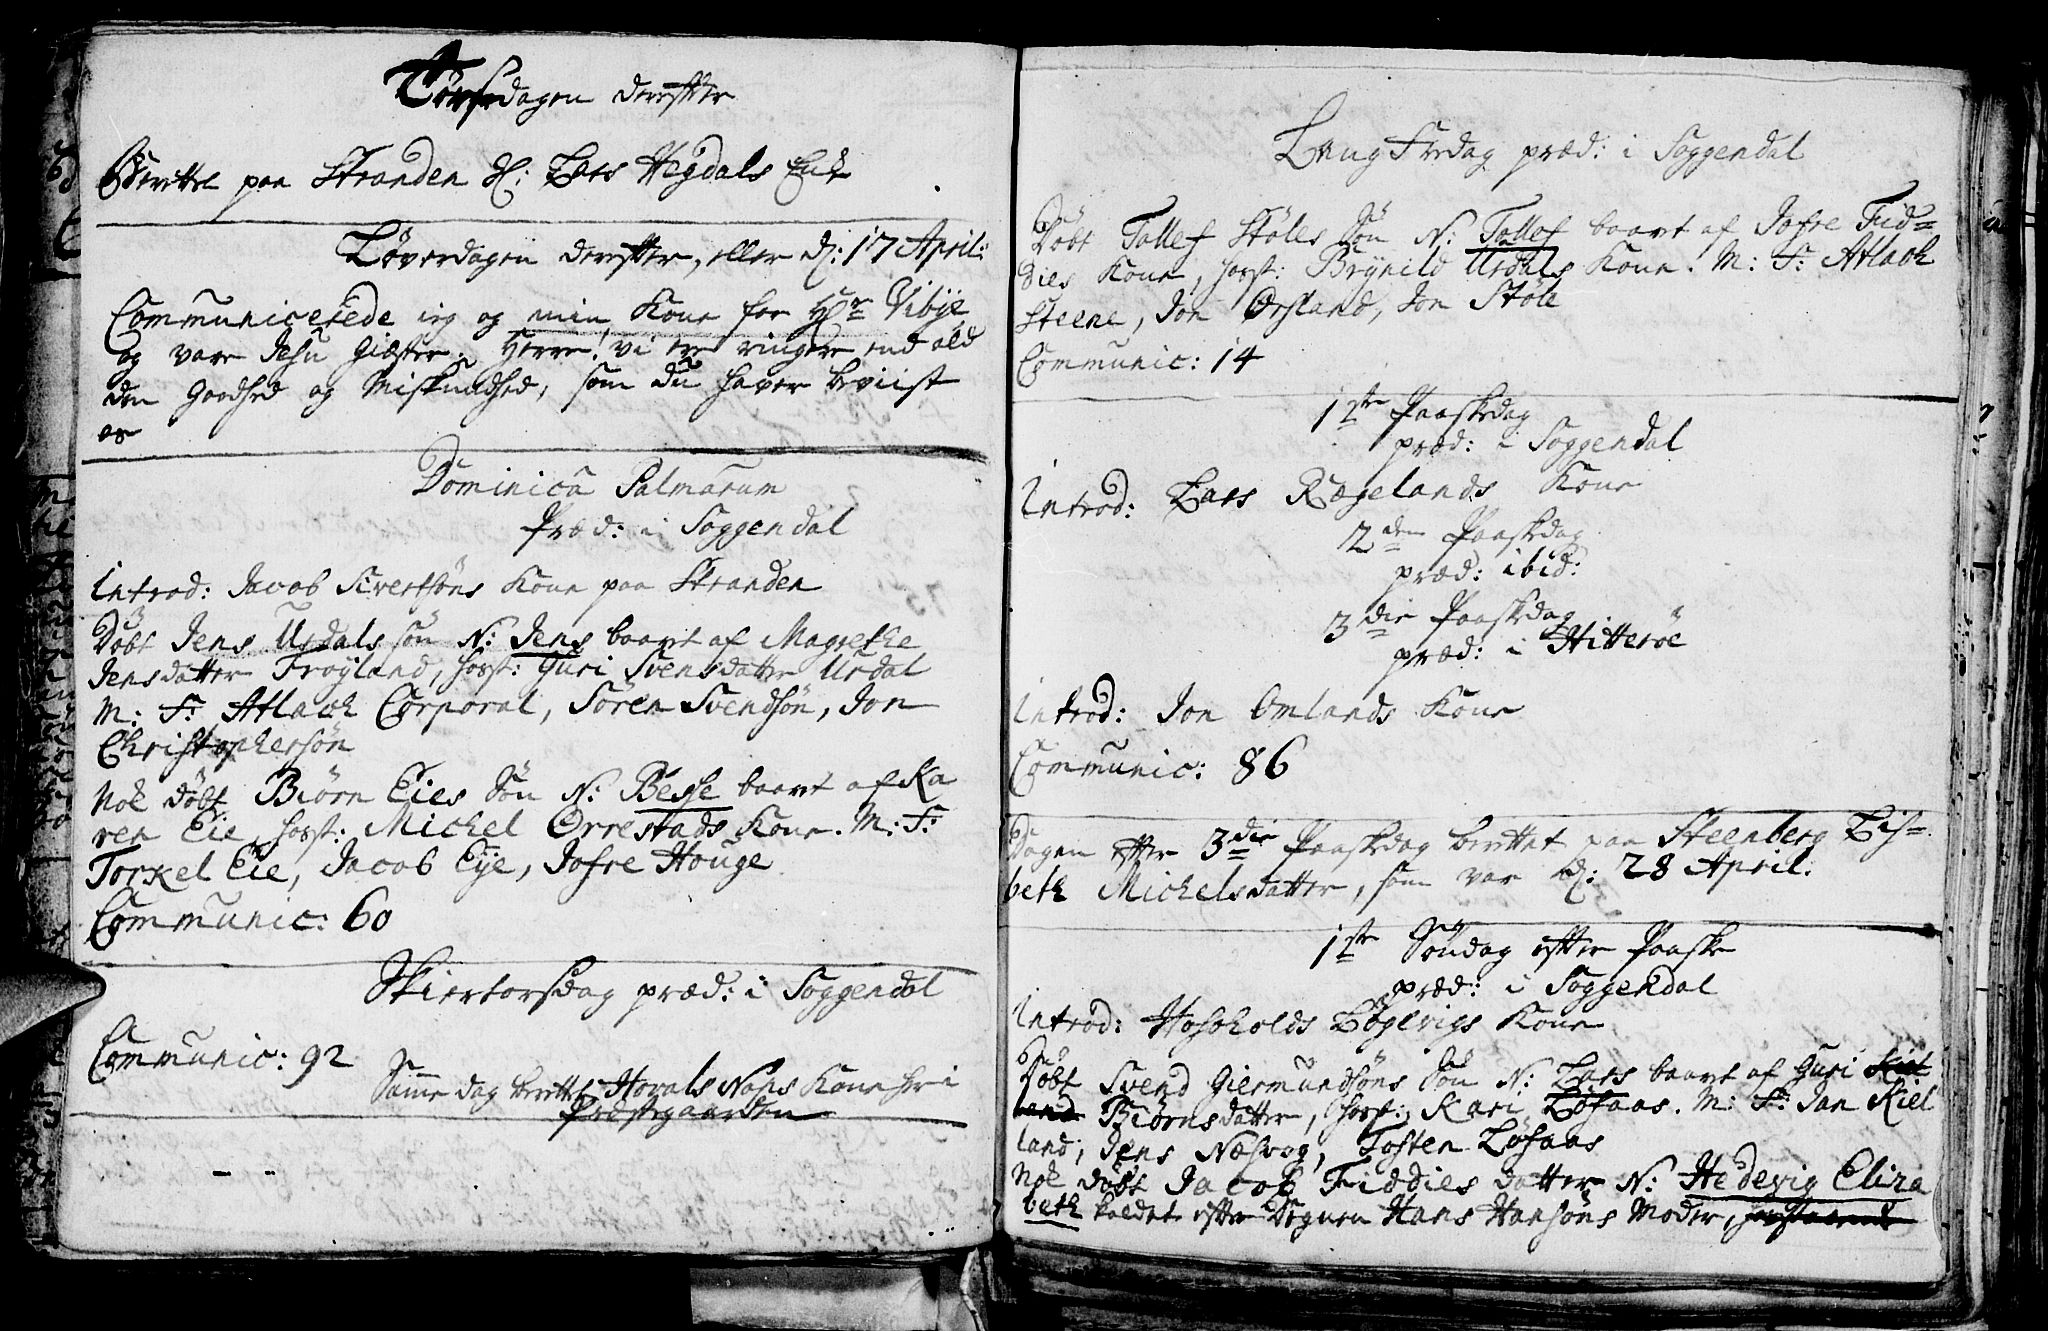 Torsdagen derefter
Berettet paa Stranden Sl: Lars Hegdals Enke
Løverdagen derefter, eller d: 17 April:
Communicerede ieg og min Kone for Hr Vibye
og vare Jesu Giæster. Herre! vi ere ringere end ald
den Godhed og Miskundhed, som du haver beviist
os
Dominica Palmarum
Præd: i Soggendal
Introd: Jacob Sivertsøns Kone paa Stranden
Døbt Jens Urdals søn N: Jens baaret af Magrethe
Jensdatter Frøyland, host: Guri Svensdatter Urdal
M: F: Atlach Corporal, Sören Svendsøn, Jon
Christophersøn
Nok døbt Biørn Eies Søn N: Besse baaret af Ka
ren Eie, host: Michel Orrestads Kone. M: F:
Torkel Eie, Jacob Eye, Jofre Houge
Communic: 60
Skiertorsdag præd: i Soggendal
Communic: 92
Samme dag berettet Hovals Nass Kone her i
Præstegaarden
Lang Fredag præd: i Soggendal
Døbt Tollef Støles Søn N: Tollef baaret af Jofre Fid=
dies Kone, host: Brynild Urdals Kone. M: F: Atlach
Steene, Jon Orsland, Jon Støle
Communic: 14
1ste Paaskedag
præd: i Soggendal
Introd: Lars Rægelands Kone
2den Paaskedag
præd: ibid:
3die Paaskedag
præd: i Hitterøe
Introd: Jon Omlands Kone
Communic: 86
Dagen efter 3die Paaskedag berettet paa Steenberg Lis=
beth Michelsdatter, som var d: 28 April:
1ste Søndag efter Paaske
præd: i Soggendal
Introd: Hosoholds Løgevigs Kone
Døbt Svend Giermundsøns Søn N: Lars baaret af Guri Kiel
land Biørnsdatter, host: Kari Løfaas. M: F: Jan Kiel
land, Jens Næsvog, Tosten Løfaas
Nok døbt Jacob Fiddies datter N: Hedevig Eliza
beth kaldet efter Degnen Hans Hansøns Moder,